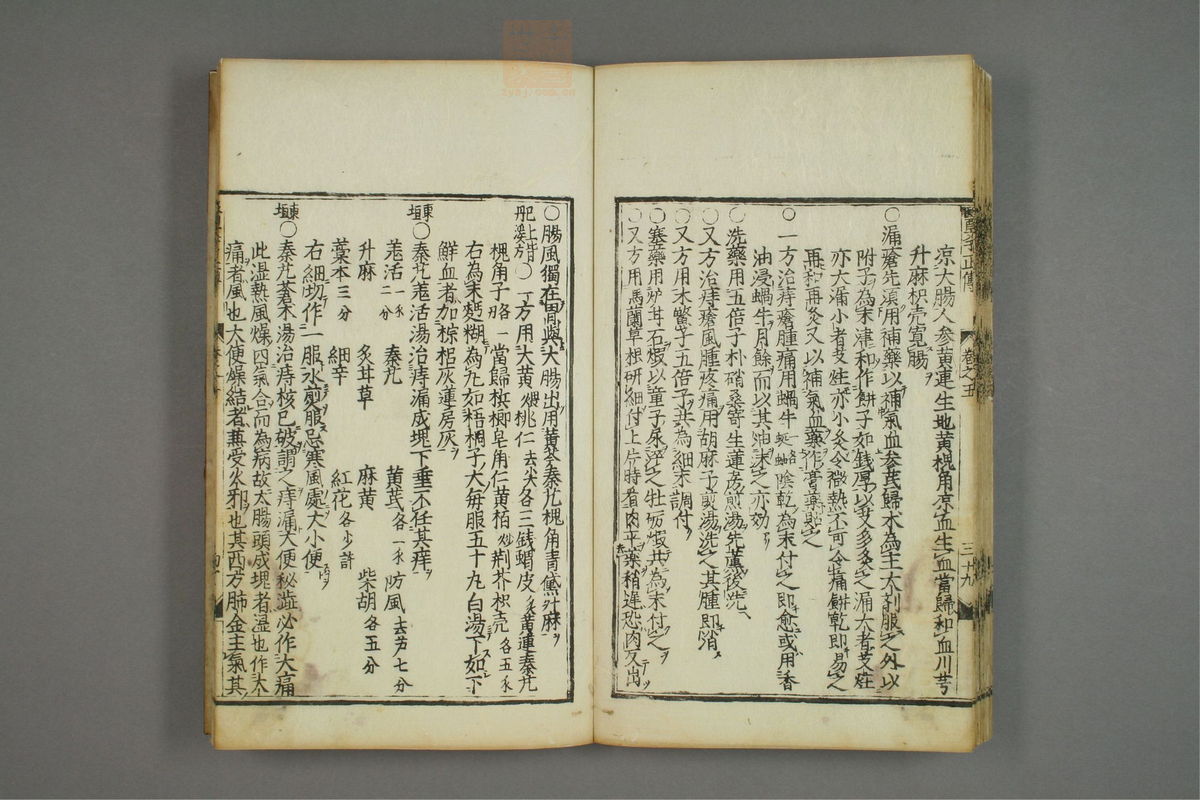 涼大腸人参黄連生地黄槐角凉血生血當歸和血川芎
升麻枳壳寛腸
○漏瘡先須用補藥以補氣血参芪歸朮為主大剤服之外以
附子為末津和作餅子如錢厚以艾多灸之漏大者艾炷
亦大漏小者艾炷亦小灸令微熱不可令痛餅乾即易之
再和再灸又以補氣血藥作膏藥貼之
○一方治痔瘡腫痛用蝸牛一名蜒蚰陰乾為末付之即愈或用香
油浸蝸牛月餘而以其油沫之亦効
○洗藥用五倍子朴硝桑寄生蓮房煎湯先薫後洗
○又方治痔瘡風腫疼痛用胡麻子煎湯洗之其腫即消
○又方用木鱉子五倍子共為細末調付
○塞藥用炉甘石煆以童子尿淬之牡蛎煆共為末付之
○又方用馬蘭草根研細付上片時看肉平藥稍遅恐肉反出
醫學正傳
卷之五
三十九
○腸風獨在胃與大腸出用黄芩秦艽槐角青黛升麻
祀上皆丹溪方○一方用大黄煨桃仁去皮尖各三銭蝟皮炙黄連秦艽
槐角子各一両當歸梹榔皂角仁黄栢炒荆芥枳壳各五䥫
右為末麪糊為丸如梧桐子大毎服五十丸白湯下如下
鮮血者加棕梠灰蓮房灰
東垣○秦艽羗活湯治痔漏成塊下垂不任其痒
羗活一䥫二分　秦艽　黄芪各一䥫　防風去芦七分
升麻　炙甘草　麻黄　柴胡各五分
藁本三分　細辛　紅花各少許
右細切作一服水煎服忌寒風處大小便
東垣○秦艽蒼朮湯治痔核已破謂之痔漏大便秘澁必作大痛
此湿熱風燥四氣合而為病故大腸頭成塊者湿也作大
痛者風也大便燥結者兼受火邪也其西方肺金主氣其